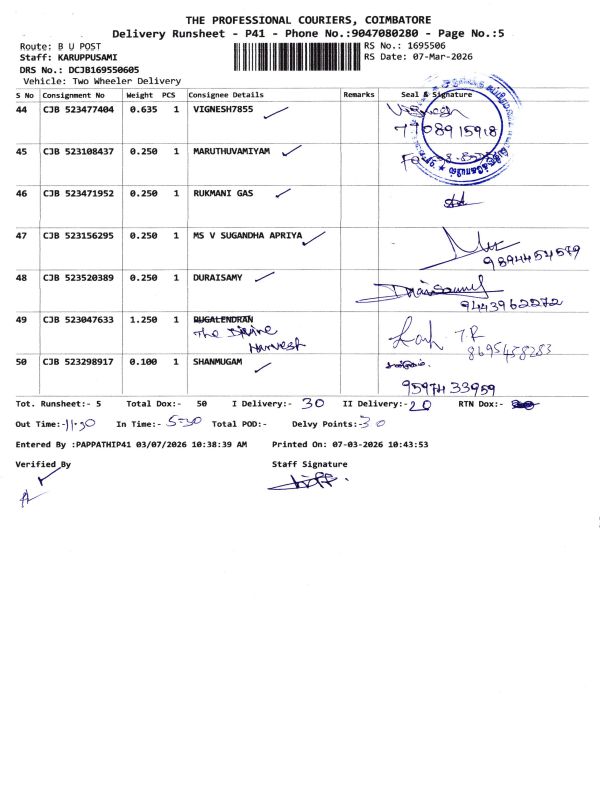 THE PROFESSIONAL COURIERS, COIMBATORE
Delivery Runsheet - P41 - Phone No.:9047080280 - Page No.:5
Route: B U POST
RS No.: 1695506
Staff: KARUPPUSAMI
RS Date: 07-Mar-2026
DRS No.: DCJB169550605
Vehicle: Two Wheeler Delivery
S No Consignment No Weight PCS Consignee Details Remarks Seal & Signature
44 CJB 523477404 0.635 1 VIGNESH7855
7708915918
45 CJB 523108437 0.250 1 MARUTHUVAMIYAM
46 CJB 523471952 0.250 1 RUKMANI GAS
47 CJB 523156295 0.250 1 MS V SUGANDHA APRIYA
9894454579
48 CJB 523520389 0.250 1 DURAISAMY
9443962572
49 CJB 523047633 1.250 1 PUGALENDRAN
The Divine
Harvest
8695458283
50 CJB 523298917 0.100 1 SHANMUGAM
9597433959
Tot. Runsheet:- 5 Total Dox:- 50 I Delivery:- 30 II Delivery:- 20 RTN Dox:-
Out Time:-11.30 In Time:- 5-30 Total POD:- Delvy Points:-30
Entered By :PAPPATHIP41 03/07/2026 10:38:39 AM Printed On: 07-03-2026 10:43:53
Verified By Staff Signature